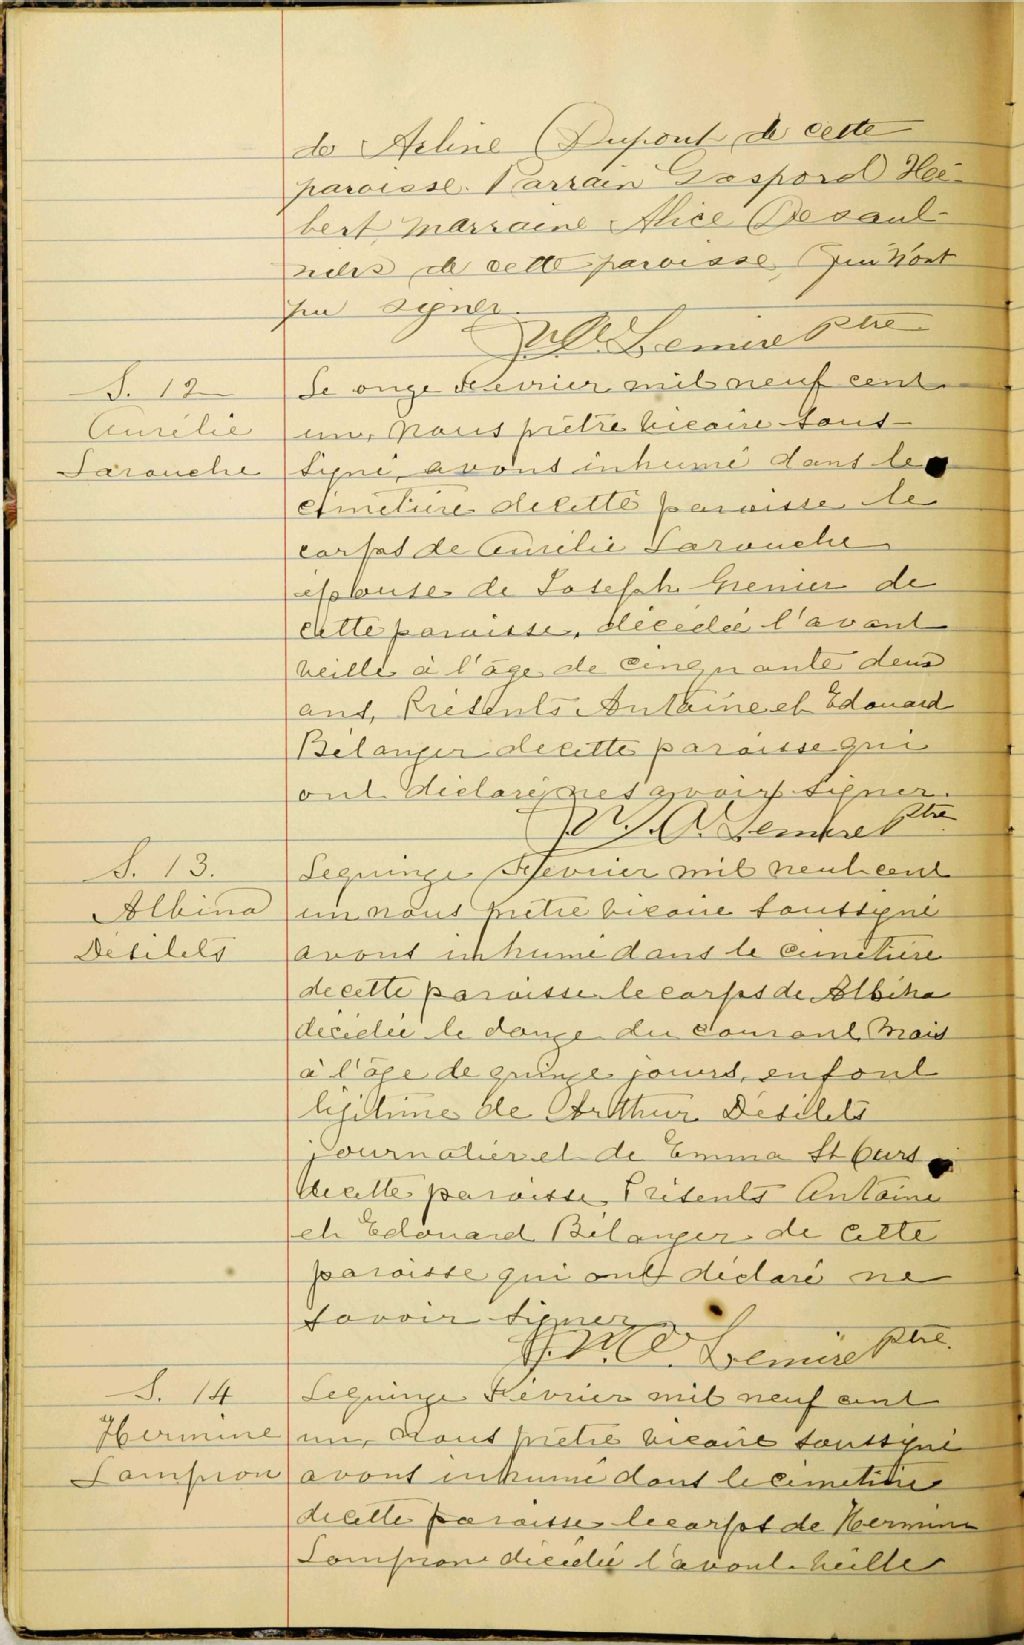 de Arline Dupont de cette
paroisse. Parrain Gaspord Hé-
bert, marraine Alice Desaul-
niers de cette paroisse, qui n'ont
pu signer.
Lemire Ptre
S. 12
Aurélie
Larouche
Le onze Février mil neuf cent
un, Nous prêtre vicaire sous-
signé, avons inhumé dans le
cimetière de cette paroisse le
corps de Aurélie Larouche
épouse de Joseph Grenier de
cette paroisse, décédée l'avant
veille à l'âge de cinquante deux
ans, Présents Antoine et Edouard
Bélanger de cette paroisse qui
ont déclaré ne savoir signer.
Lemire Ptre
S. 13.
Albina
Désilets
Le quinze Février mil neuf cent
un nous prêtre vicaire soussigné
avons inhumé dans le cimetière
de cette paroisse le corps de Albina
décédée le douze du courant mois
à l'âge de quinze jours, enfant
légitime de Arthur Désilets
journalier et de Emma St Ours
de cette paroisse Présents Antoine
et Edouard Bélanger de cette
paroisse qui ont déclaré ne
savoir signer
Lemire Ptre.
S. 14
Hermine
Lampron
Le quinze Février mil neuf cent
un, Nous prêtre vicaire soussigné
avons inhumé dans le cimetière
de cette paroisse le corps de Hermine
Lampron décédée l'avant-veille